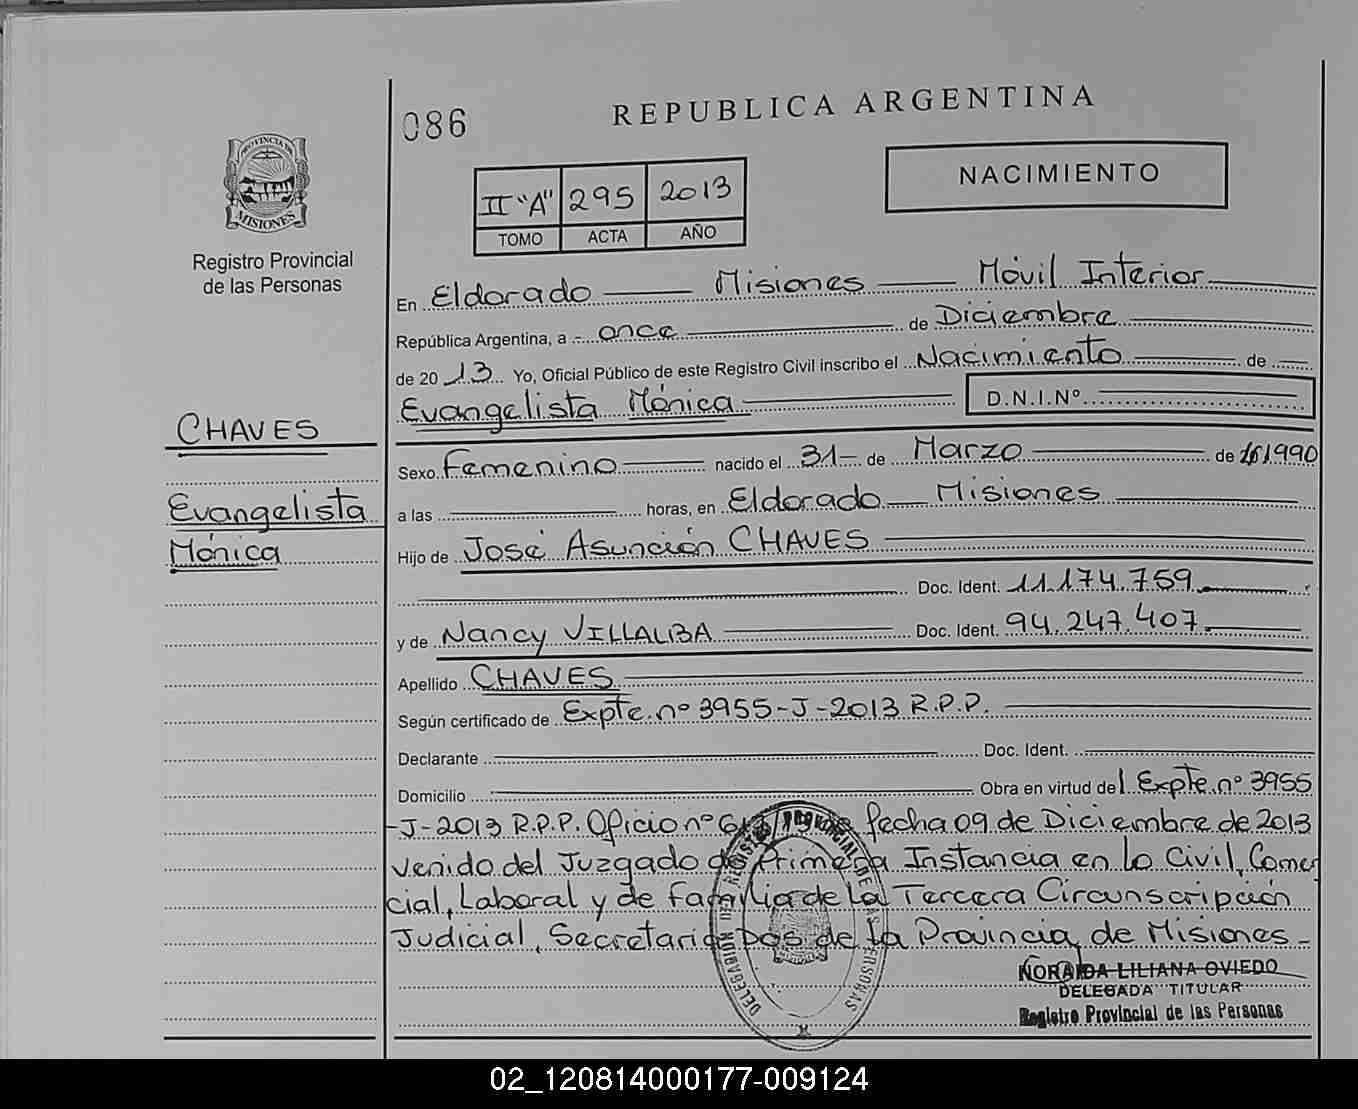 086
REPUBLICA ARGENTINA
NACIMIENTO
II "A" 295 2013
TOMO ACTA AÑO
PROVINCIA DE
MISIONES
Registro Provincial
de las Personas
En Eldorado Misiones Móvil Interior
República Argentina, a once de Diciembre
de 2013 Yo, Oficial Público de este Registro Civil inscribo el Nacimiento de
Evangelista Mónica D.N.I.Nº
CHAVES
Sexo Femenino nacido el 31 de Marzo de 1990
Evangelista
Mónica
a las horas, en Eldorado Misiones
Hijo de José Asunción CHAVES
Doc. Ident. 11.174.759
y de Nancy VILLALBA Doc. Ident. 94.247.407
Apellido CHAVES
Según certificado de Expte. nº 3955-J-2013 R.P.P.
Declarante Doc. Ident.
Domicilio Obra en virtud del Expte. nº 3955
-J-2013 R.P.P. Oficio nº fecha 09 de Diciembre de 2013
venido del Juzgado de Primera Instancia en lo Civil, Comer
cial, Laboral y de Familia de la Tercera Circunscripción
Judicial, Secretaria Dos de la Provincia de Misiones -
DELEGACION DEL REGISTRO PROVINCIAL DE LAS PERSONAS
NORAIDA LILIANA OVIEDO
DELEGADA TITULAR
Registro Provincial de las Personas
02_120814000177-009124